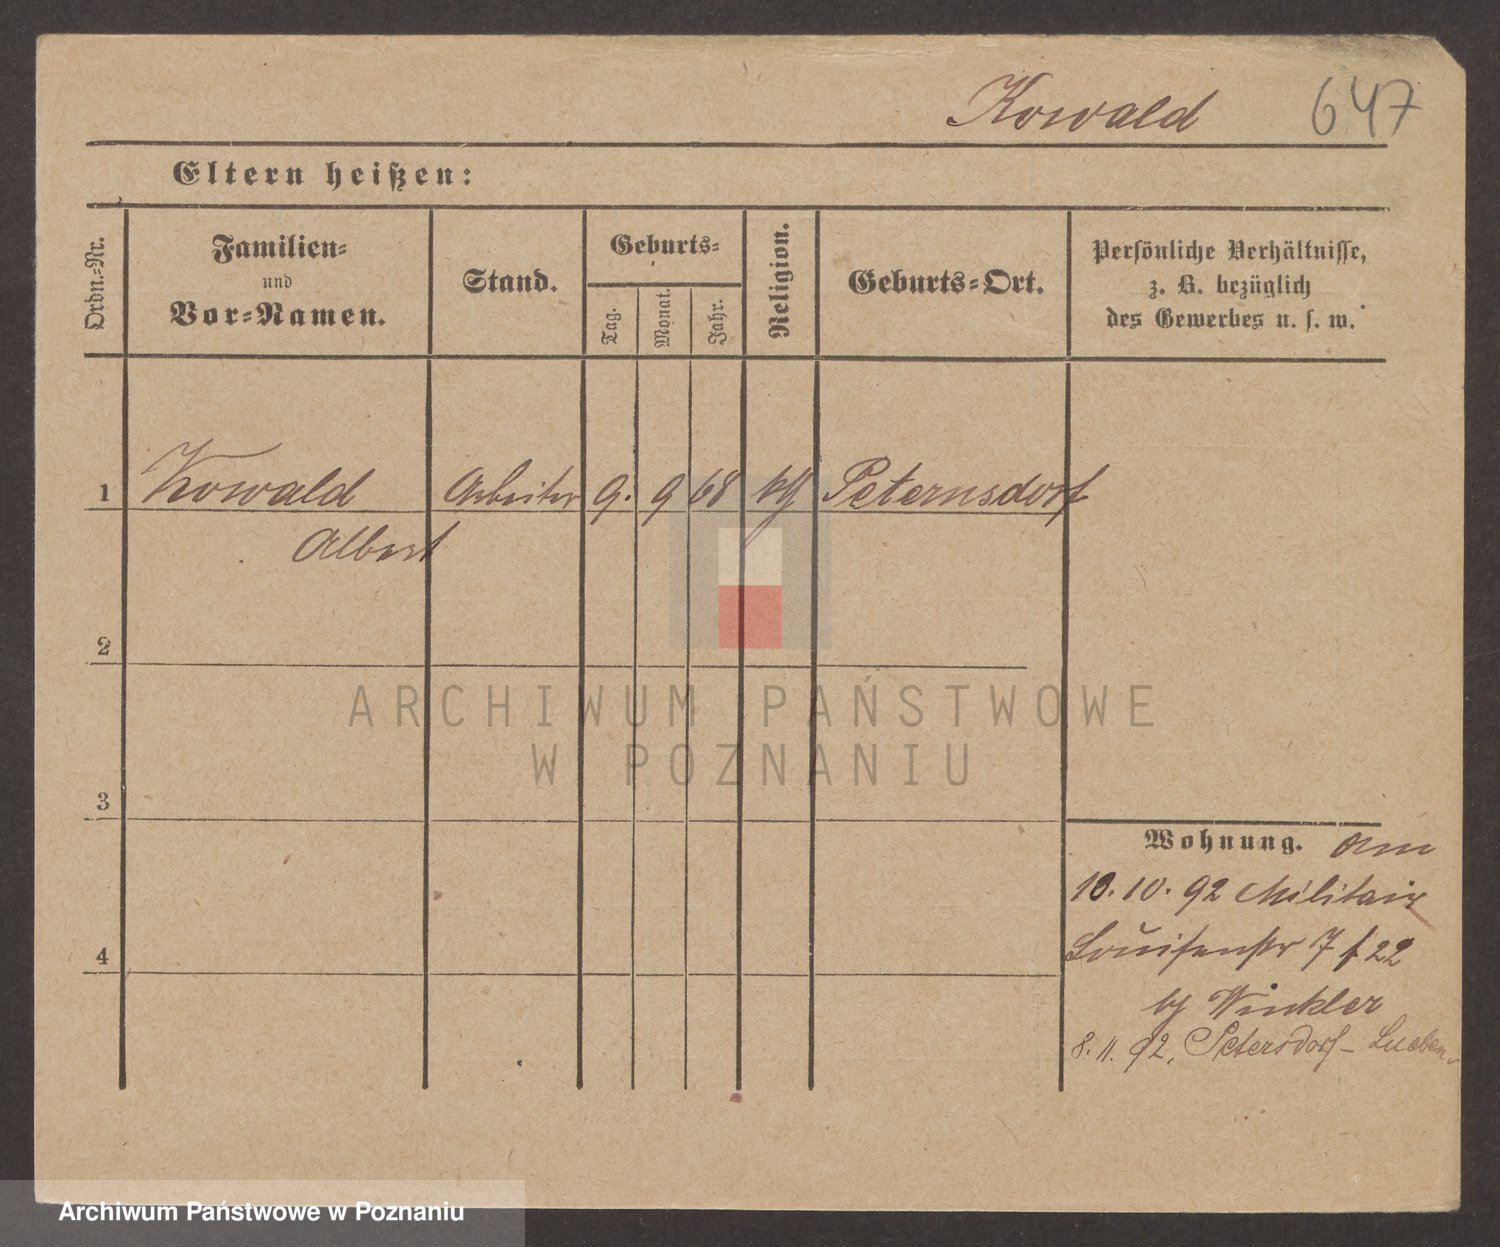 Kowald 647
Eltern heißen:
Ordn.-Nr.
Familien-
und
Vor-Namen.
Stand.
Geburts-
Tag.
Monat.
Jahr.
Religion.
Geburts-Ort.
Persönliche Verhältnisse,
z. B. bezüglich
des Gewerbes u. s. w.
1 Kowald Arbeiter 9. 9 68 kth Peternsdorf
Albert
2
3
4
Wohnung. am
10. 10. 92 Militair
Louisenstr 7 f 22
by Winkler
8. 11. 92, Petersdorf-
ARCHIWUM PAŃSTWOWE
W POZNANIU
Archiwum Państwowe w Poznaniu